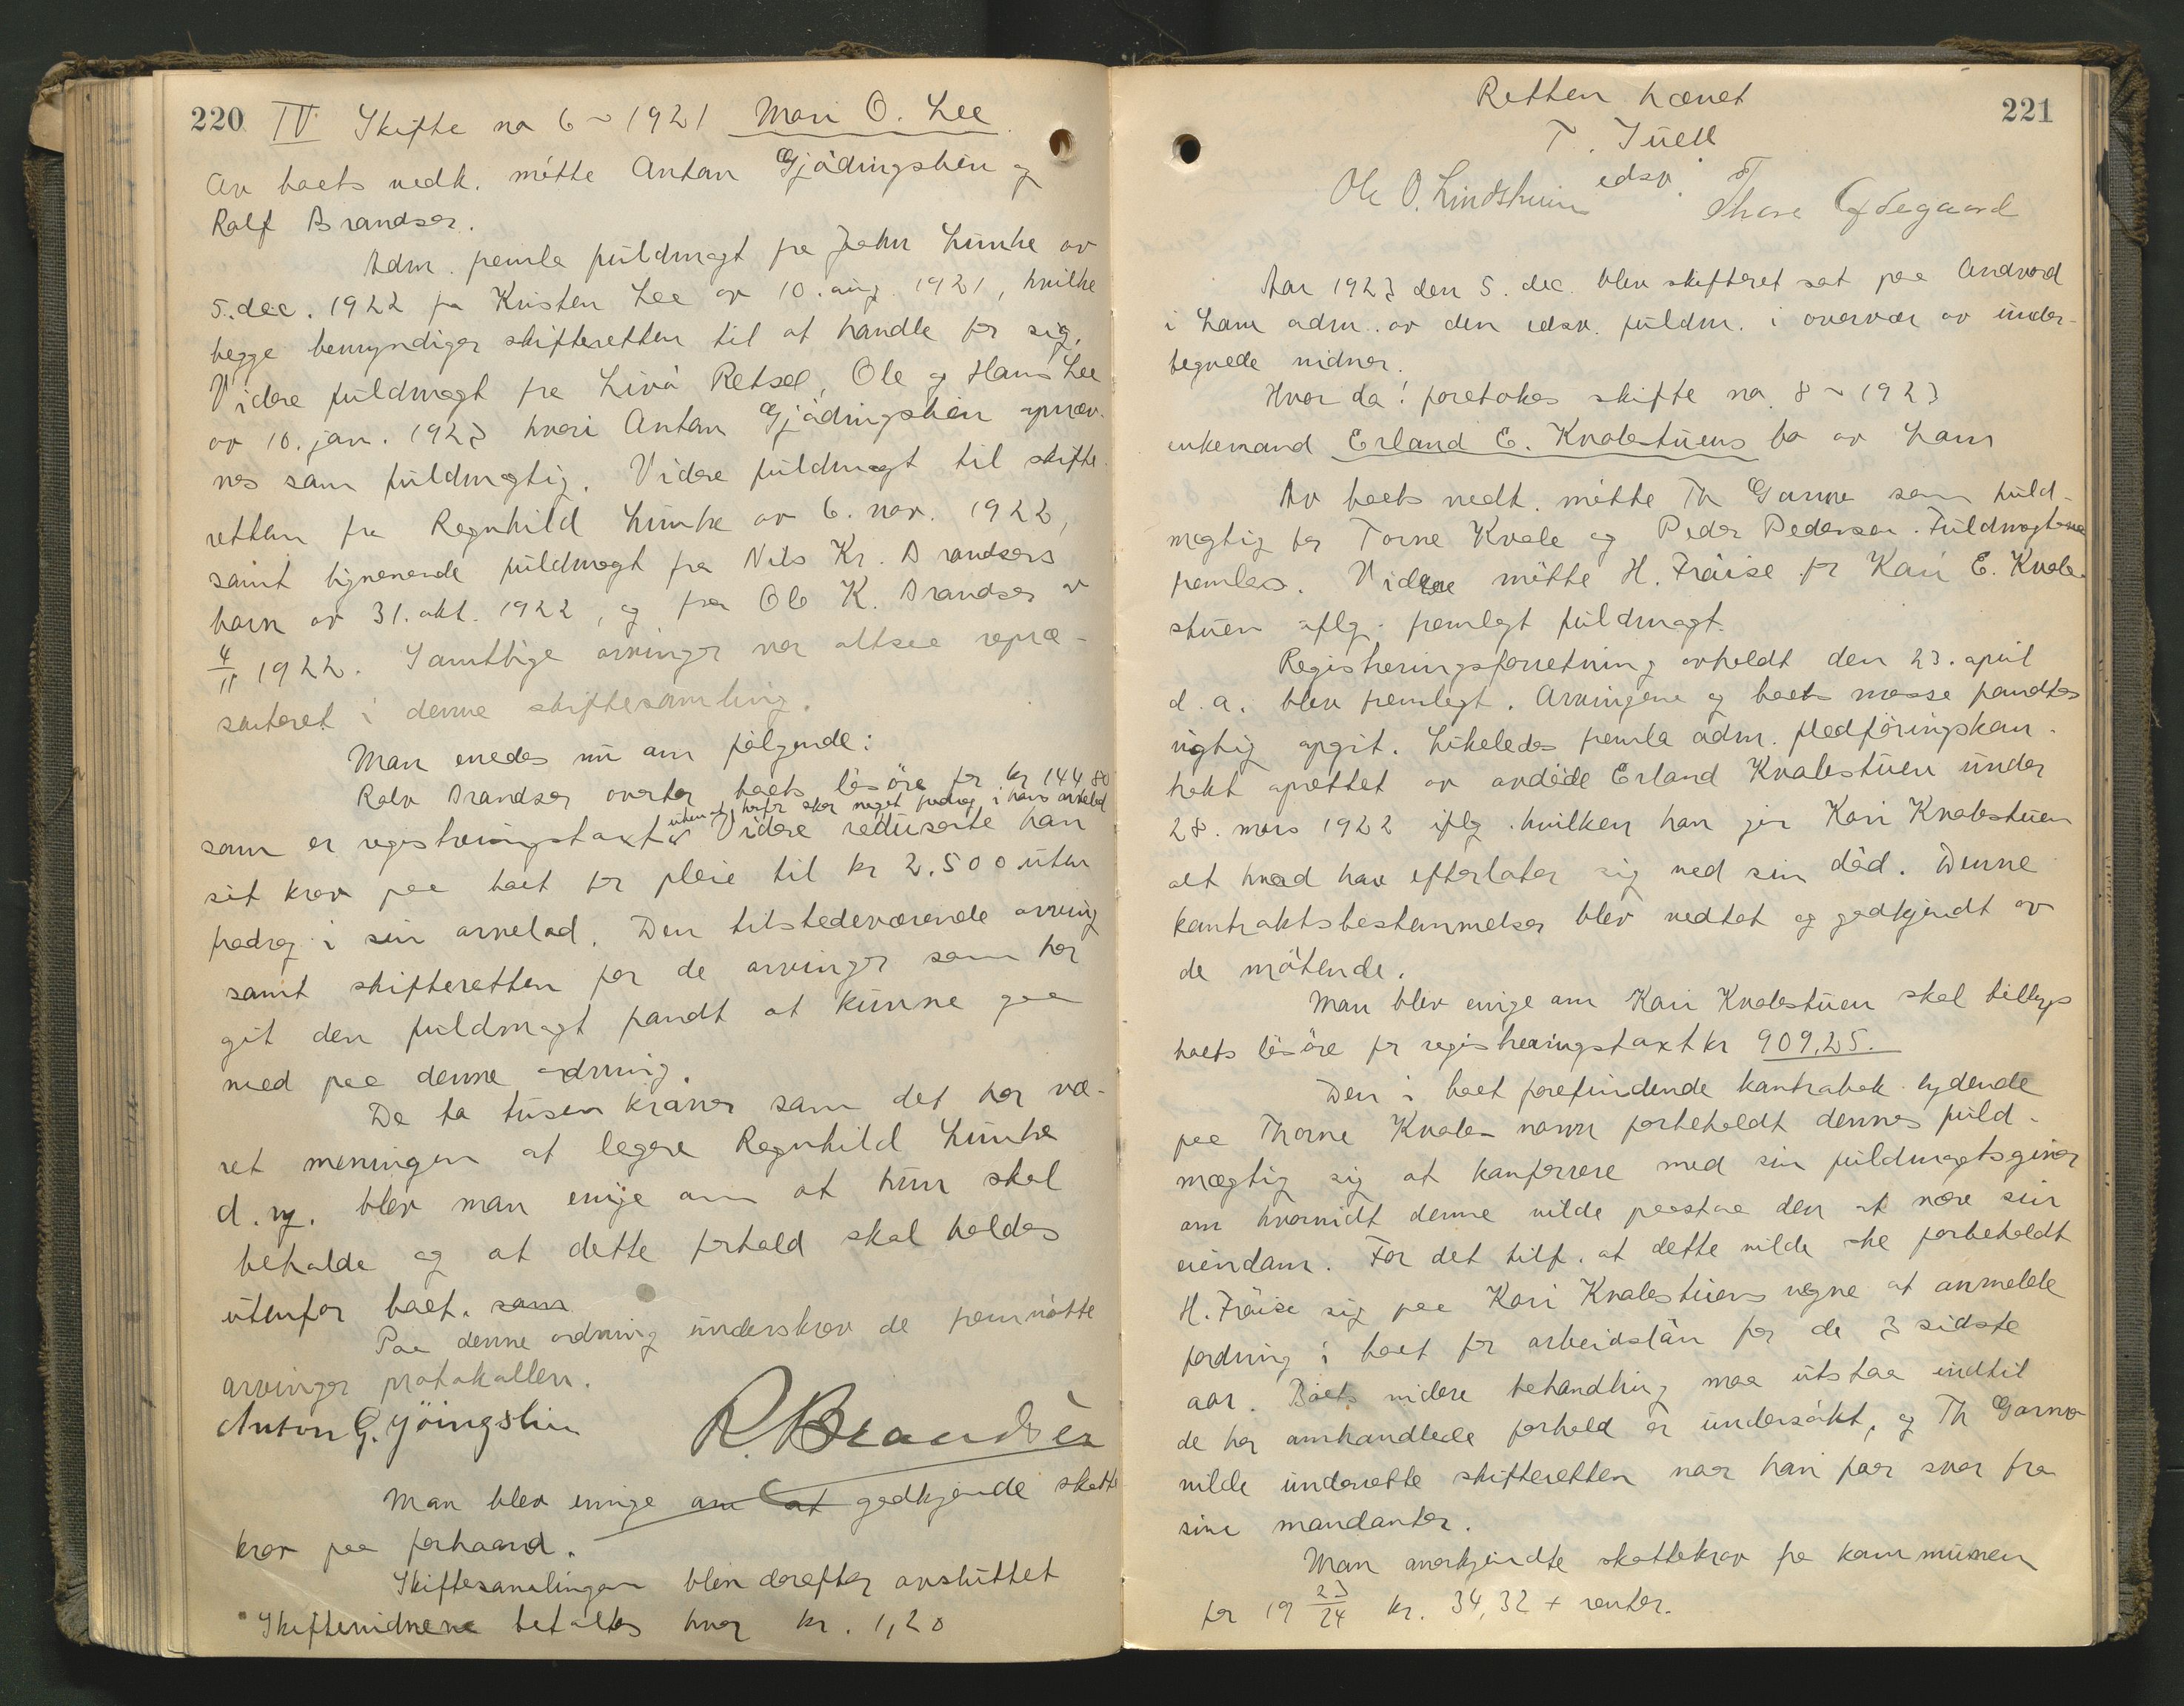 220 IV Skifte no 6 - 1921 Mari O. Lee
Av boets vedk. mötte Anton Gjödingslien og
Rolf Brandser.
Adm. femla fuldmagt fra John Lunke av
5. dec. 1922 fra Kristen Lee av 10. aug. 1921, hvilke
begge bemyndiger skifteretten til at handle for sig.
Videre fuldmagt fra Liva Retsel, Ole og Hans Lee
av 10. jan. 1923 hvori Anton Gjödingslien opnæv-
nes som fuldmægtig. Videre fuldmagt til skifte-
retten fra Ragnhild Lunke av 6. nov. 1922,
samt lignenende fuldmagt fra Nils Kr. Brandsers
barn av 31. okt. 1922, og fra Ole K. Brandser av
4/11 1922. Samtlige arvinger var altsaa repræ-
senteret i denne skiftesamling.
Man enedes nu om følgende:
Rolv Brandser overtar boets lösöre for kr 144 80
uten at herfor sker noget fradrag i hans arvelod
som er registreringstakst. Videre reduserte han
sit krav paa boet for pleie til kr 2.500 uten
fradrag i sin arvelod. Den tilstedeværende arving
samt skifteretten for de arvinger som har
git den fuldmagt fandt at kunne gaa
med paa denne ordning.
De to tusen kroner som det har væ-
ret meningen at legere Ragnhild Lunke
d. y. blev man enige om at hun skal
beholde og at dette forhold skal holdes
utenfor boet. som
Paa denne ordning underskrev de fremmötte
arvinger protokollen.
Anton G. jöingslin R. Brandsèr
Man blev enige om at godkjende skatte
krav paa forhaand.
Skiftesamlingen blev derefter avsluttet
Skiftevidnene betaltes hver kr. 1,20
Retten hævet
221
T. Juell
edsv.
Ole O. Lindsheim Thore Ødegaard
Aar 1923 den 5. dec. blev skifteret sat paa Andvord
i Lom adm. av den edsv. fuldm. i overvær av under-
tegnede vidner.
Hvor da: foretokes skifte no. 8 - 1923
enkemand Erland E. Kvalestuens bo av Lom
Av boets vedk. mötte Th Garmo som fuld-
mægtig for Torne Kvale og Peder Pedersen. Fuldmagterne
femlaes. Videre mötte H. Fräise for Kari E. Kvale-
stuen iflg. fremlagt fuldmagt.
Registreringsforretning avholdt den 23. april
d. a. blev fremlagt. Arvingene og boets masse fandtes
rigtig opgit. Likeledes femla adm. flødföringskon-
trakt oprettet av avdöde Erland Kvalestuen under
28. mars 1922 iflg. hvilken han gir Kari Kvalestuen
alt hvad han efterlater sig ved sin död. Denne
kontraktsbestemmelser blev vedtat og godkjendt av
de mötende.
Man blev enige om Kari Kvalestuen skal tillægs
boets lösöre for registreringstakst kr 909,25.
Den i boet forefindende kontrabok lydende
paa Thorne Kvales navn forbeholdt dennes fuld-
mægtig sig at konferere med sin fuldmagtsgiver
om hvorvidt denne vilde paastaa den at være sin
eiendom. For det tilf. at dette vilde ske forbeholdt
H. Fräise sig paa Kari Kvalestuens vegne at anmelde
fordring i boet for arbeidslön for de 3 sidste
aar. Boets videre behandling maa utstaa indtil
de her omhandlede forhold er undersökt, og Th Garmo
vilde underrette skifteretten naar han faar svar fra
sine mandanter.
Man anerkjendte skattekrav fra kommunen
for 19 23/24 kr. 34,32 + renter.